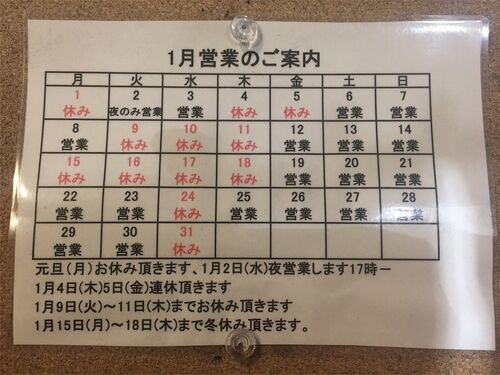 1月営業のご案内
月 火 水 木 金 土 日
1 2 3 4 5 6 7
休み 夜のみ営業 営業 休み 休み 営業 営業
8 9 10 11 12 13 14
営業 休み 休み 休み 営業 営業 営業
15 16 17 18 19 20 21
休み 休み 休み 休み 営業 営業 営業
22 23 24 25 26 27 28
営業 営業 休み 営業 営業 営業 営業
29 30 31
営業 営業 休み
元旦(月)お休み頂きます、1月2日(水)夜営業します17時ー
1月4日(木)5日(金)連休頂きます
1月9日(火)～11日(木)までお休み頂きます
1月15日(月)～18日(木)まで冬休み頂きます。